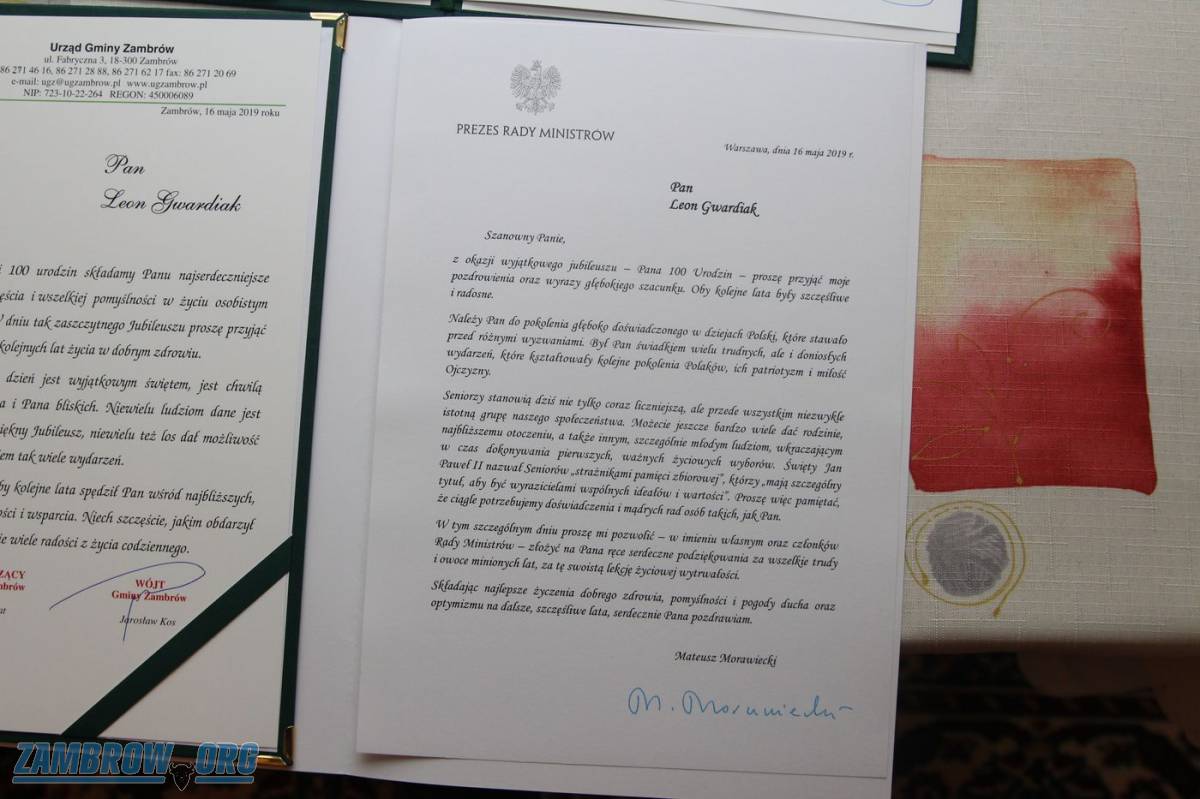 Urząd Gminy Zambrów
ul. Fabryczna 3, 18-300 Zambrów
86 271 46 16, 86 271 28 88, 86 271 62 17 fax: 86 271 20 69
e-mail: ugz@ugzambrow.pl www.ugzambrow.pl
NIP: 723-10-22-264 REGON: 450006089
Zambrów, 16 maja 2019 roku
Pan
Leon Gwardiak
100 urodzin składamy Panu najserdeczniejsze
i wszelkiej pomyślności w życiu osobistym
dniu tak zaszczytnego Jubileuszu proszę przyjąć
kolejnych lat życia w dobrym zdrowiu.
dzień jest wyjątkowym świętem, jest chwilą
i Pana bliskich. Niewielu ludziom dane jest
Jubileusz, niewielu też los dał możliwość
tak wiele wydarzeń.
kolejne lata spędził Pan wśród najbliższych,
i wsparcia. Niech szczęście, jakim obdarzył
wiele radości z życia codziennego.
WÓJT
Gminy Zambrów
Jarosław Kos
PREZES RADY MINISTRÓW
Warszawa, dnia 16 maja 2019 r.
Pan
Leon Gwardiak
Szanowny Panie,
z okazji wyjątkowego jubileuszu – Pana 100 Urodzin – proszę przyjąć moje
pozdrowienia oraz wyrazy głębokiego szacunku. Oby kolejne lata były szczęśliwe
i radosne.
Należy Pan do pokolenia głęboko doświadczonego w dziejach Polski, które stawało
przed różnymi wyzwaniami. Był Pan świadkiem wielu trudnych, ale i doniosłych
wydarzeń, które kształtowały kolejne pokolenia Polaków, ich patriotyzm i miłość
Ojczyzny.
Seniorzy stanowią dziś nie tylko coraz liczniejszą, ale przede wszystkim niezwykle
istotną grupę naszego społeczeństwa. Możecie jeszcze bardzo wiele dać rodzinie,
najbliższemu otoczeniu, a także innym, szczególnie młodym ludziom, wkraczającym
w czas dokonywania pierwszych, ważnych życiowych wyborów. Święty Jan
Paweł II nazwał Seniorów „strażnikami pamięci zbiorowej”, którzy „mają szczególny
tytuł, aby być wyrazicielami wspólnych ideałów i wartości”. Proszę więc pamiętać,
że ciągle potrzebujemy doświadczenia i mądrych rad osób takich, jak Pan.
W tym szczególnym dniu proszę mi pozwolić – w imieniu własnym oraz członków
Rady Ministrów – złożyć na Pana ręce serdeczne podziękowania za wszelkie trudy
i owoce minionych lat, za tę swoistą lekcję życiowej wytrwałości.
Składając najlepsze życzenia dobrego zdrowia, pomyślności i pogody ducha oraz
optymizmu na dalsze, szczęśliwe lata, serdecznie Pana pozdrawiam.
Mateusz Morawiecki
M. Morawiecki
ZAMBROW.ORG